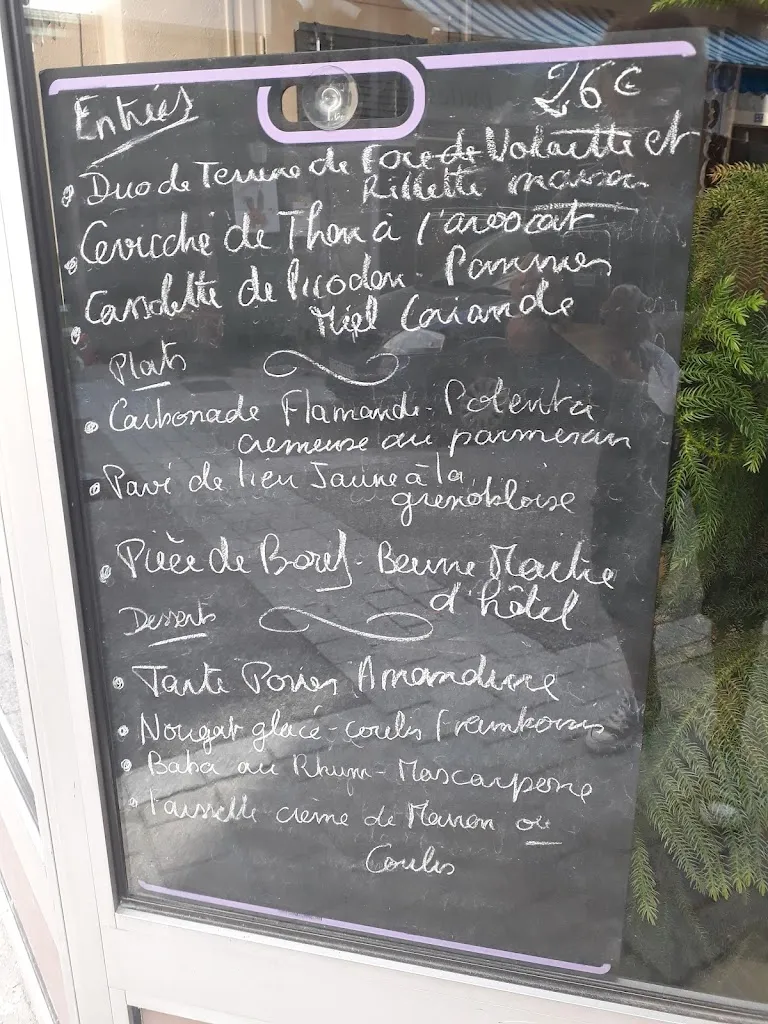 Entrées
26 €
Duo de Terrine de Foie de Volaille et
Rillette maison
Cevicché de Thon à l'avocat
Cassolette de Picodon Pommes
Miel Coriandre
Plats
Carbonade Flamande - Polenta
crémeuse au parmesan
Pavé de lieu Jaune à la
grenobloise
Pièce de Boeuf - Beurre Maitre
d'hôtel
Desserts
Tarte Poires Amandine
Nougat glacé - coulis Framboises
Baba au Rhum - Mascarpone
Faisselle crème de Marron ou
Coulis